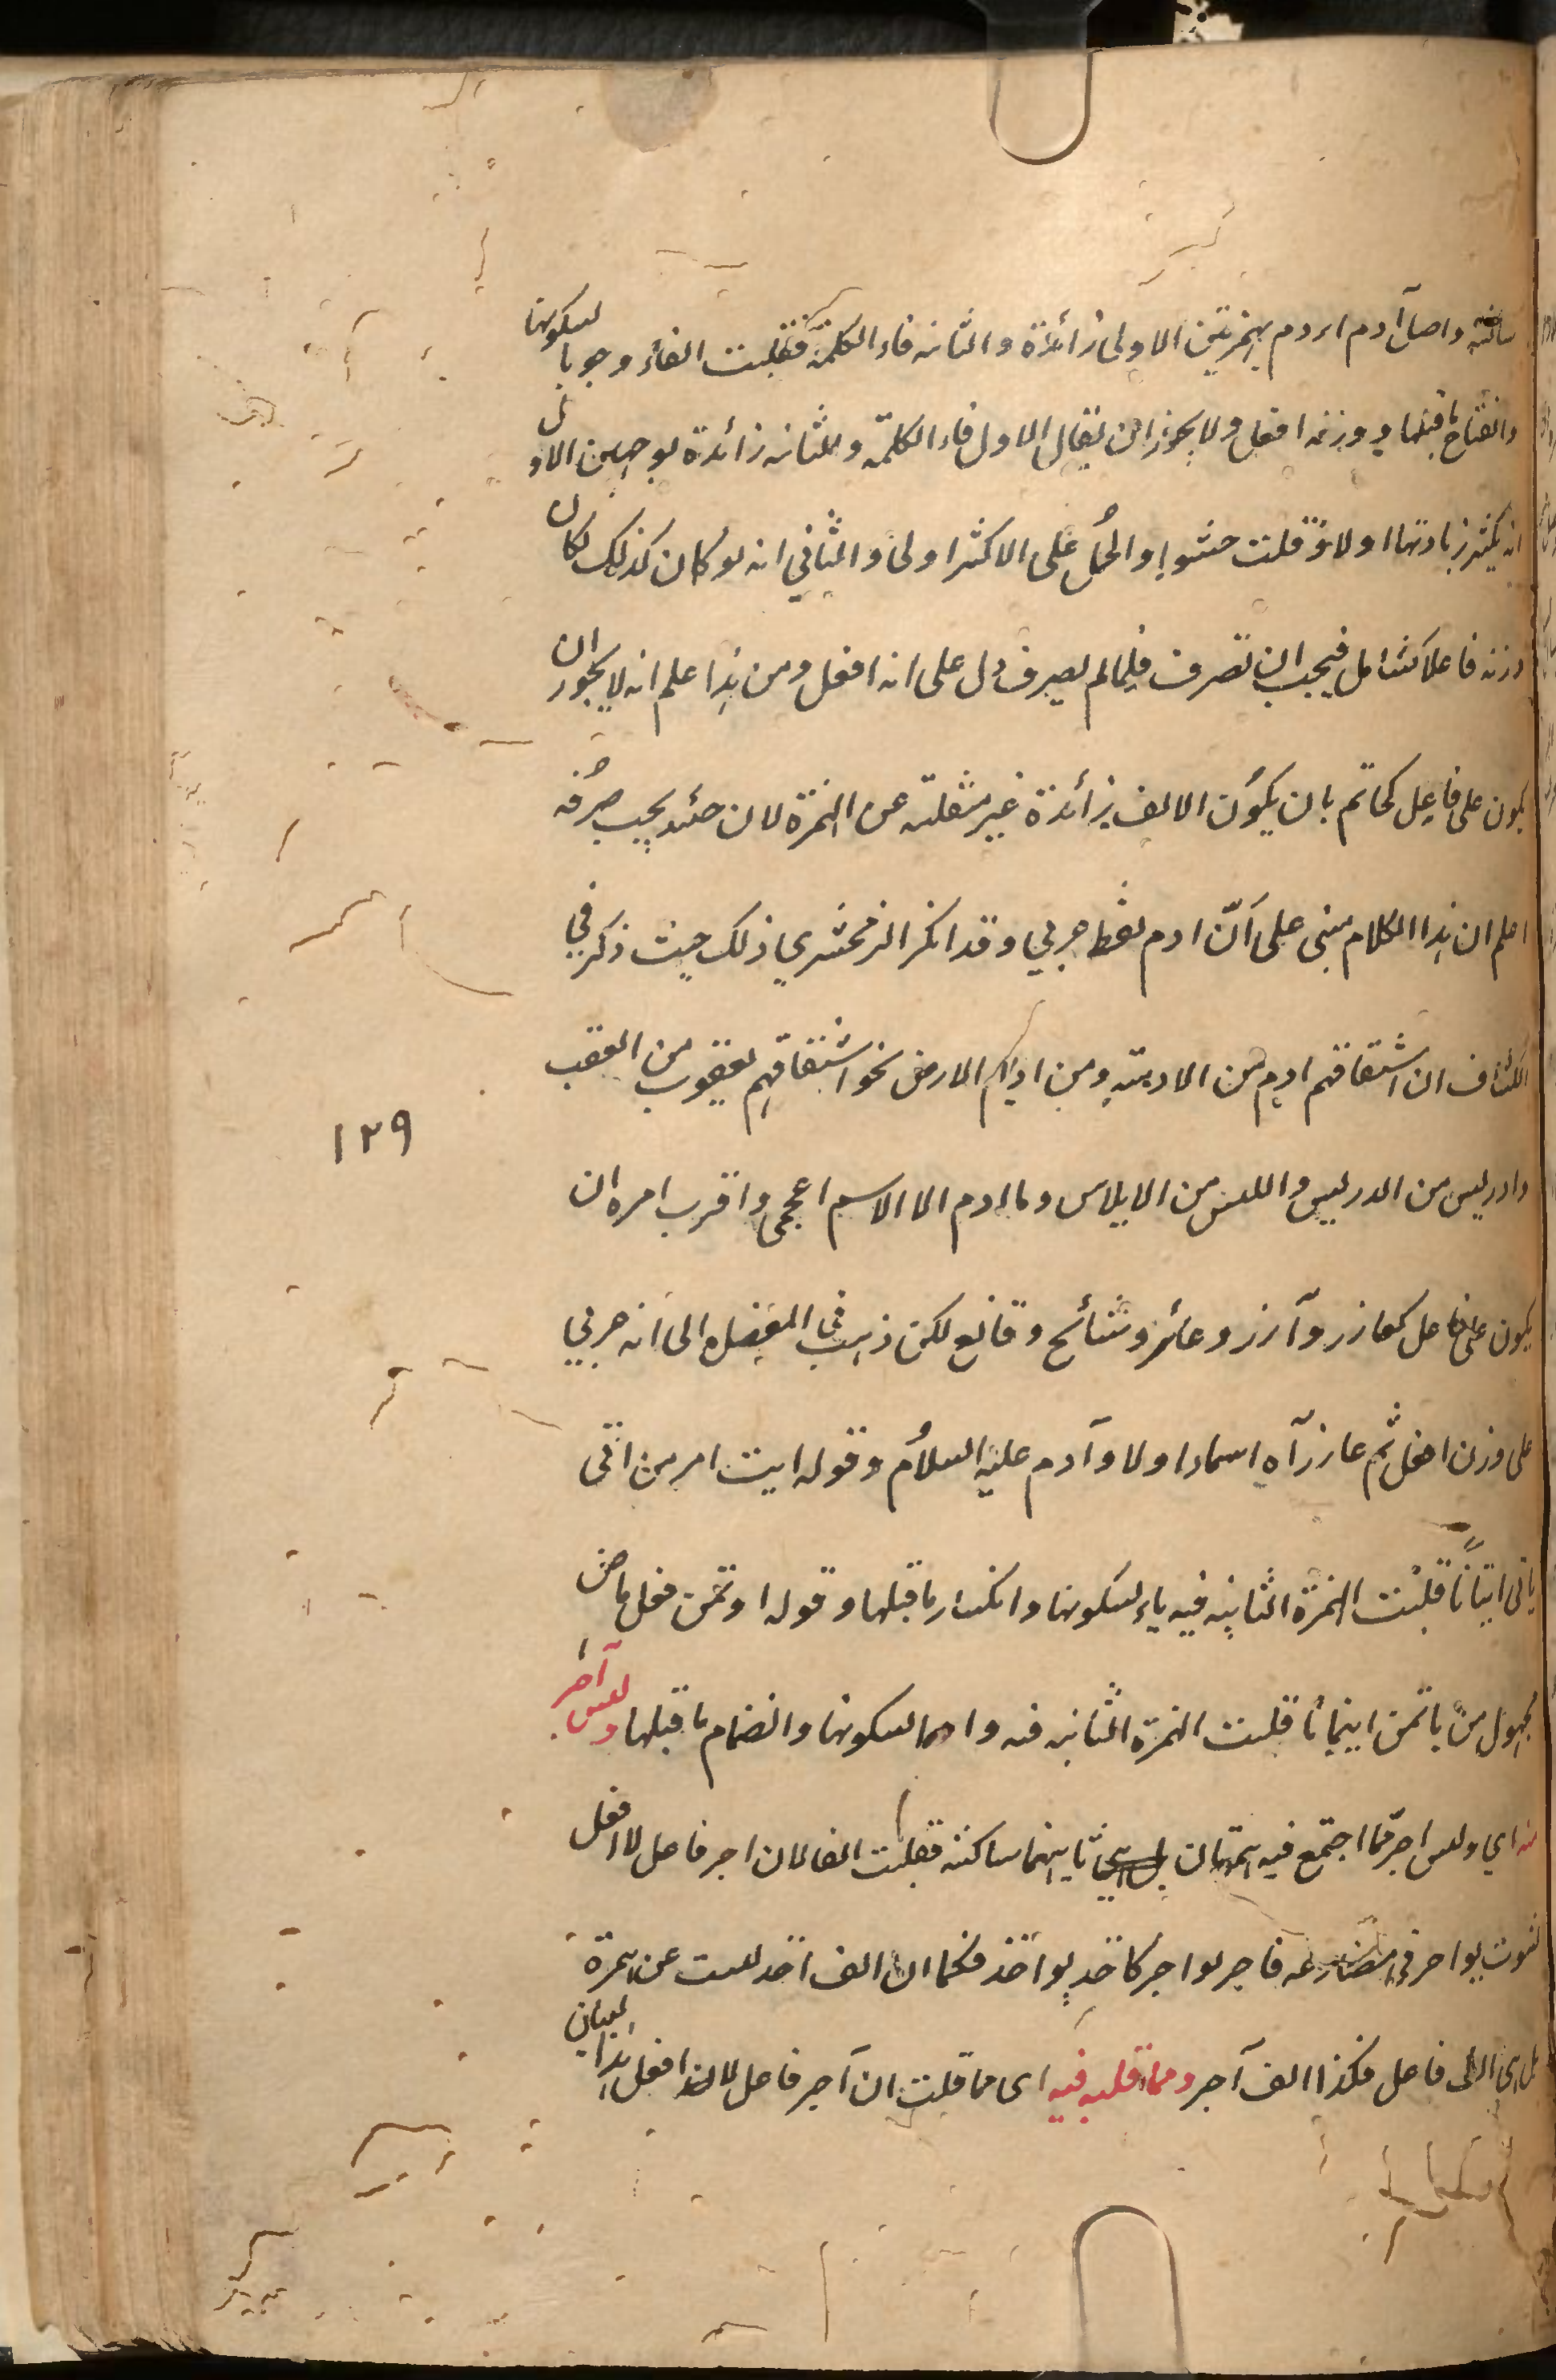 ساكنة واصل آدم اءدم بهمزتين الاولى زائدة والثانيه فاء الكلمة فقلبت الفاء وجوبا لسكونها
وانفتاح ما قبلها ووزنه افعل ولا يجوز ان يقال الاول فاء الكلمة والثانيه زائدة لوجهين الاول
انه يكثر زيادتها اولا وقلت حشوا والحمل على الاكثر اولى والثاني انه لو كان كذلك لكان
وزنه فاعلا كشامل فيجب ان تصرف فلما لم يصرف دل على انه افعل ومن هذا علم انه لا يجوز ان
يكون على فاعل كخاتم بان يكون الالف زائدة غير منقلبة عن الهمزة لان حينئذ يجب صرفه
اعلم ان هذا الكلام مبنى على انّ ادم لفظ عربي وقد انكر الزمخشري ذلك حيث ذكر في
الكشاف ان اشتقاقهم ادم من الادمة ومن اديم الارض نحو اشتقاقهم يعقوب من العقب
وادريس من الدريس وابليس من الابلاس وما ادم الا الاسم اعجمى واقرب امره ان
يكون على فاعل كعازر وآزر وعابر وشالخ وفالغ لكن ذهب في المفصل الى انه عربي
على وزن افعل ثم عازر آه اسماء اولاد آدم عليه السلام وقوله ايت امر من اتى
ياتى ايتانا قلبت الهمزة الثانيه فيه ياء لسكونها وانكسار ما قبلها وقوله اوتمن فعل ماض
مجهول من ياتمن ايتمانا قلبت الهمزة الثانيه فيه واوا لسكونها وانضمام ما قبلها وليس آجر
منه اي وليس اجر مما اجتمع فيه همزتان ثانيتهما ساكنة فقلبت الفا لان اجر فاعل لا افعل
لثبوت يواجر في مضارعه فاجر يواجر كاخذ يواخذ فكما ان الف اخذ ليست عن همزة
بل هى الف فاعل فكذا الف آجر ومما قلبه فيه اى مما قلت ان آجر فاعل لا افعل هذان البيتان
١٢٩